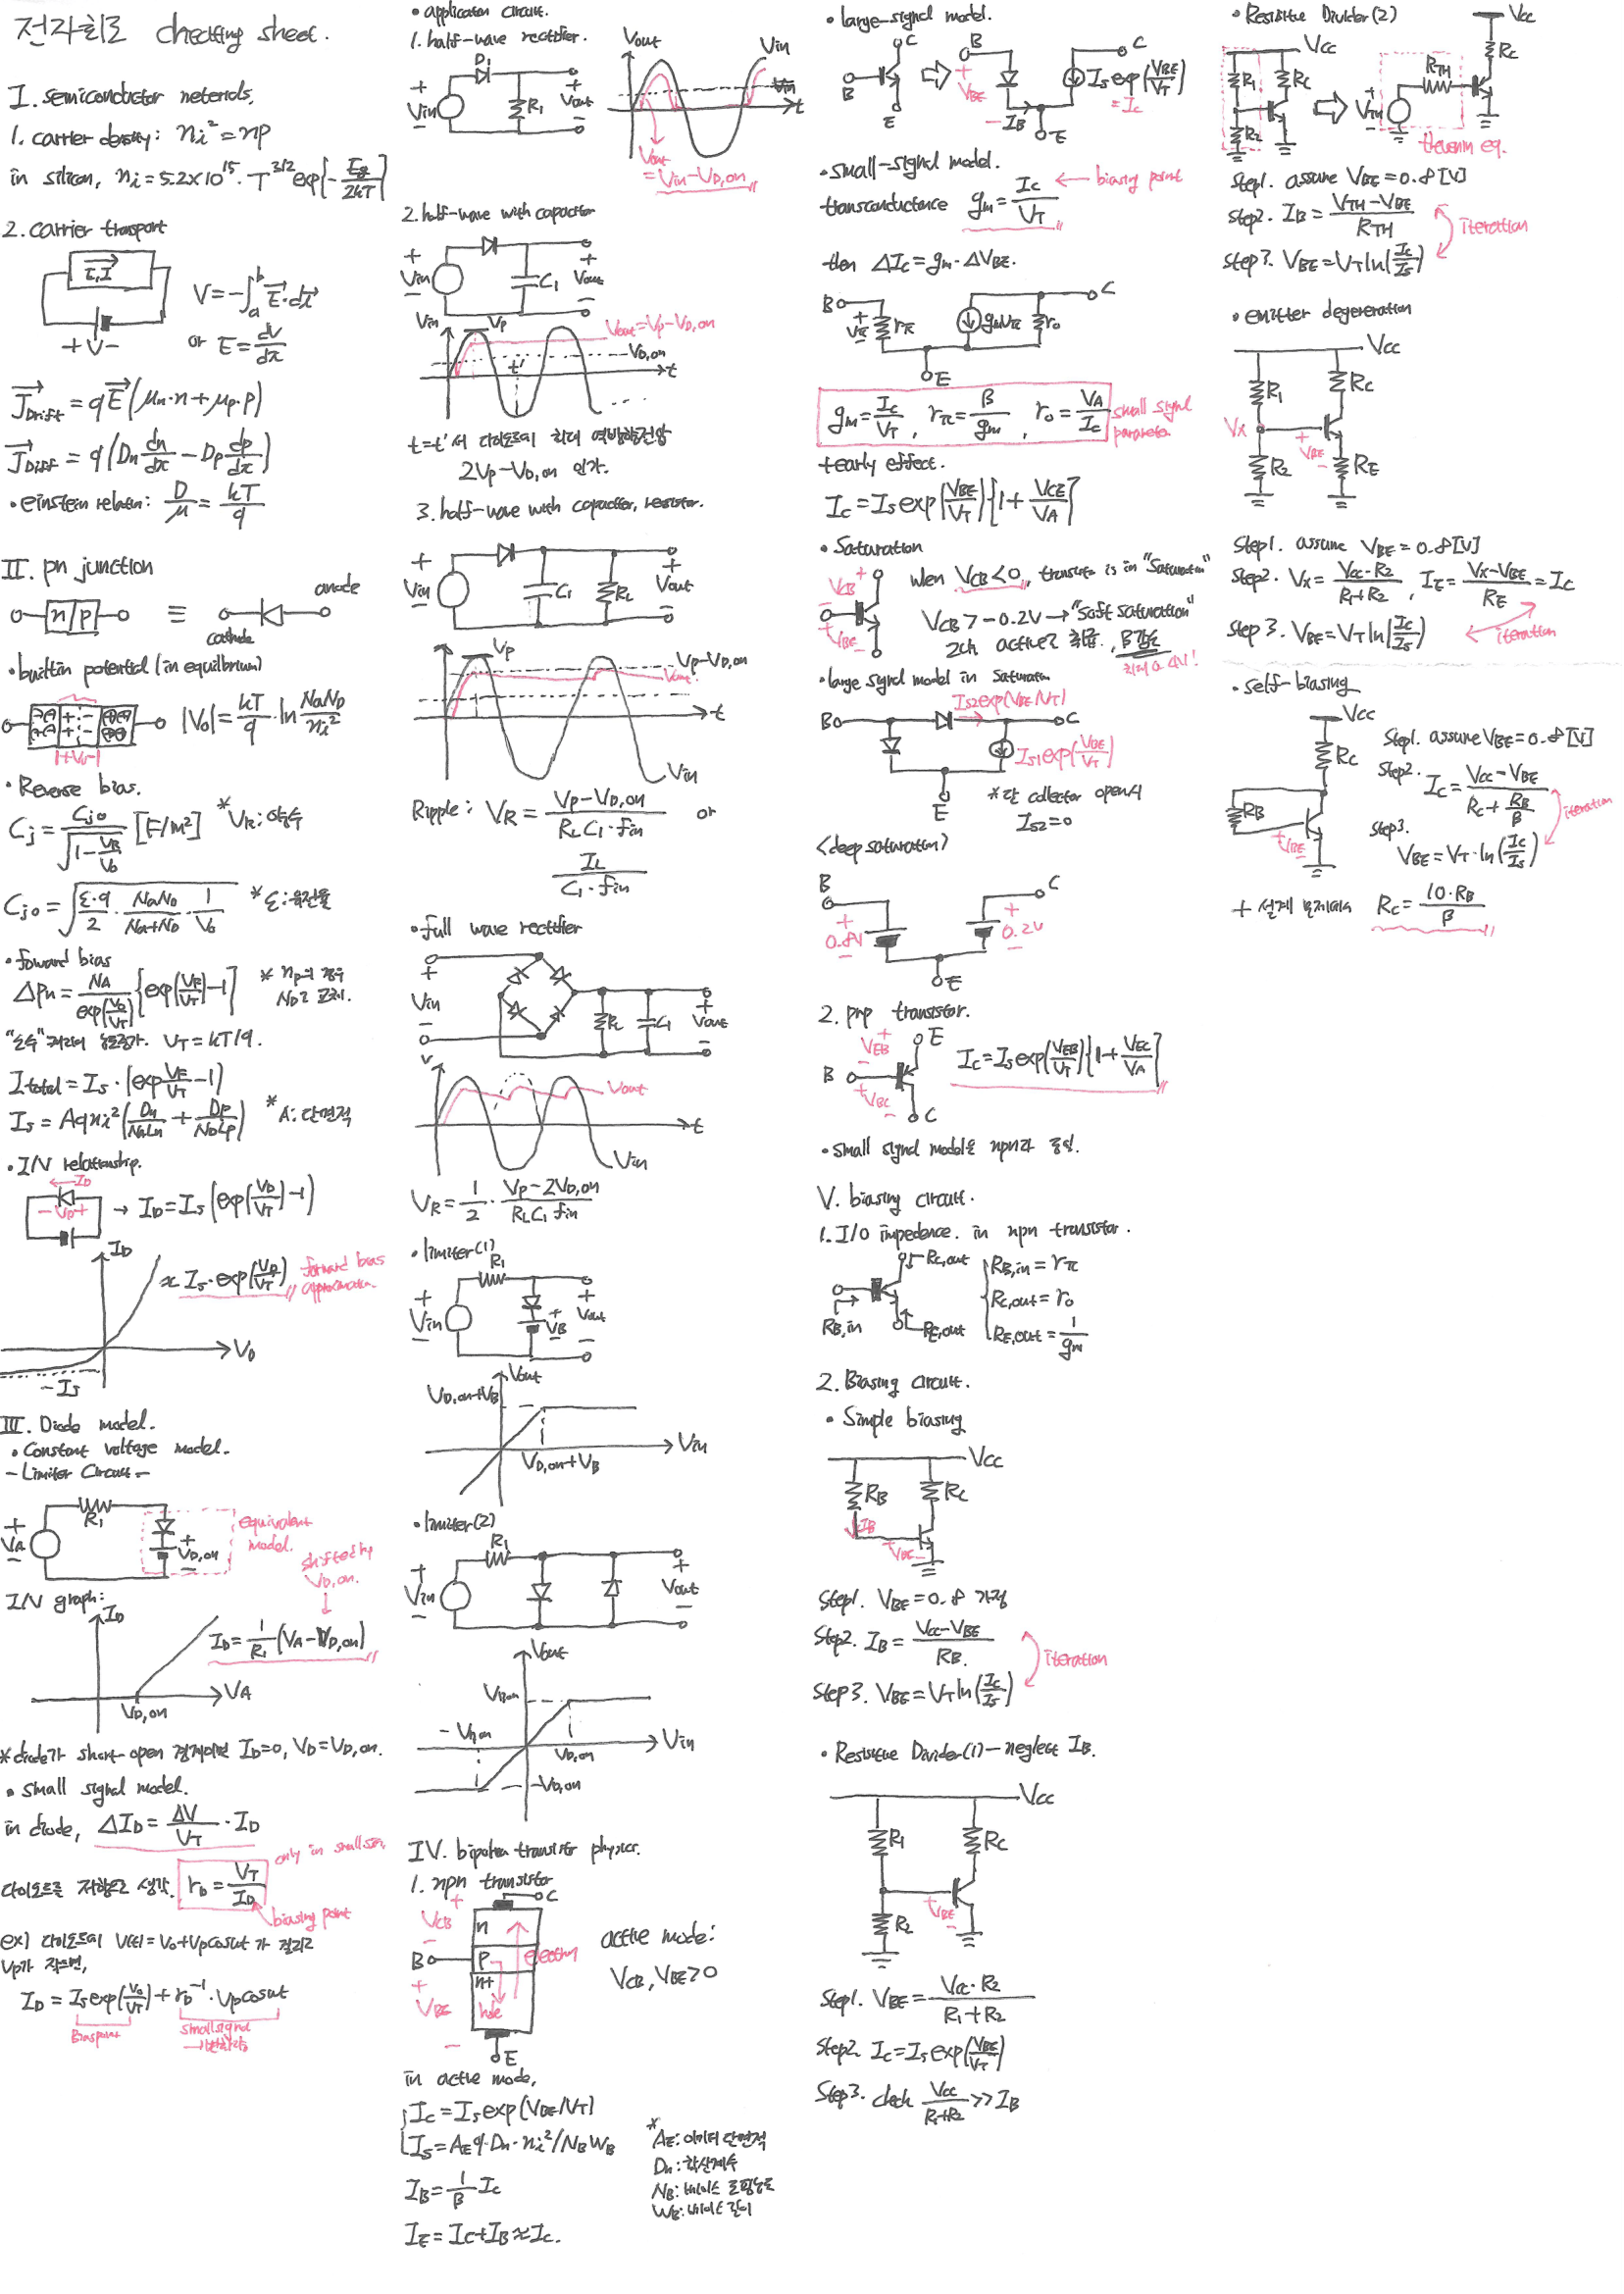 전자회로 cheating sheet.
I. semiconductor materials.
1. carrier density: ni² = np
in silicon, ni = 5.2×10¹⁵ · T^3/2 exp[-Eg/2kT]
2. carrier transport
E, I
V = -∫_a^b E·dx
+ V -
or E = dV/dx
J_Drift = qE(μn·n + μp·p)
J_Diff = q(Dn dn/dx - Dp dp/dx)
• einstein relation: D/μ = kT/q
II. pn junction
n p ≡
anode
cathode
• built in potential (in equilibrium)
|V0| = kT/q · ln NaND/ni²
• Reverse bias.
Cj = Cj0/√(1 - VR/V0) [F/m²] * VR: 음수
Cj0 = √(ε·q/2 · NaND/(Na+ND) · 1/V0) * ε: 유전율
• foward bias
Δpn = NA/exp(V0/VT) {exp(VF/VT) - 1} * np의 경우
ND로 교체.
VT = kT/q.
Itotal = Is · (exp VF/VT - 1)
Is = Aqni²(Dn/NaLn + Dp/NDLp) * A: 단면적
• I/V relationship.
ID
- VD +
→ ID = Is(exp(VD/VT) - 1)
ID
≈ Is·exp(VD/VT) forward bias
approximation.
VD
-Is
III. Diode model.
• Constant voltage model.
- Limiter Circuit -
R1
+ VA -
+ VD,on -
equivalent
model.
shifted by
VD,on.
I/V graph:
ID
ID = 1/R1 (VA - VD,on)
VA
VD,on
* diode가 short-open 경계이면 ID=0, VD=VD,on.
• small signal model.
in diode, ΔID = ΔV/VT · ID
only in small sig.
다이오드를 저항으로 생각. rD = VT/ID
biasing point
ex) 다이오드에 V(t) = V0+Vpcosωt 가 걸리고
Vp가 작으면,
ID = Is exp(V0/VT) + rD⁻¹ · Vpcosωt
Bias point
small signal
• application circuit.
1. half-wave rectifier.
D1
+ Vin -
R1
+ Vout -
Vout
Vin
t
Vout
= Vin-VD,on
2. half-wave with capacitor
+ Vin -
C1
+ Vout -
Vin
Vp
Vout=Vp-VD,on
VD,on
t'
t
t=t'서 다이오드에 최대 역방향전압
2Vp-VD,on 인가.
3. half-wave with capacitor, resistor.
+ Vin -
C1
RL
+ Vout -
Vp
Vp-VD,on
Vout
t
Vin
Ripple: VR = (Vp-VD,on)/(RLC1·fin) or
IL/(C1·fin)
• full wave rectifier
+ Vin -
RL
C1
+ Vout -
V
Vout
t
Vin
VR = 1/2 · (Vp-2VD,on)/(RLC1 fin)
• limiter(1)
R1
+ Vin -
+ VB -
+ Vout -
Vout
VD,on+VB
Vin
VD,on+VB
• limiter(2)
R1
+ Vin -
+ Vout -
Vout
VD,on
-VD,on
Vin
VD,on
-VD,on
IV. bipolar transistor physics.
1. npn transistor
C
+ VCB -
n
B
p
electron
n+
+ VBE -
hole
E
active mode:
VCB, VBE>0
in active mode,
Ic = Is exp(VBE/VT)
Is = AE q·Dn·ni²/NBWB
* AE: 이미터 단면적
Dn: 확산계수
NB: 베이스 도핑농도
WB: 베이스 길이
IB = 1/β Ic
IE = Ic+IB≈Ic.
• large-signal model.
C
B
E
B
+ VBE -
IB
E
C
Is exp(VBE/VT)
= Ic
• small-signal model.
transconductance gm = Ic/VT ← biasing point
then ΔIc = gm·ΔVBE.
B
+ Vπ -
rπ
gmVπ
ro
C
E
gm = Ic/VT, rπ = β/gm, ro = VA/Ic small signal
parameter
+early effect.
Ic = Is exp(VBE/VT)[1 + VCE/VA]
• Saturation
+ VCB -
+ VBE -
when VCB<0, transistor is in "Saturation"
VCB > -0.2V → "Soft saturation"
β감소
최저 0.4V!
• large signal model in Saturation
Is2exp(VBE/VT)
B
C
Is1exp(VBE/VT)
E
*단 collector open시
Is2=0
(deep saturation)
B
C
+ 0.8V -
+ 0.2V -
E
2. pnp transistor.
+ VEB -
E
B
+ VBC -
C
Ic = Is exp(VEB/VT)[1 + VEC/VA]
• small signal model은 npn과 동일.
V. biasing circuit.
1. I/O impedence. in npn transistor.
Rc,out
RB,in
RE,out
RB,in = rπ
Rc,out = ro
RE,out = 1/gm
2. Biasing circuit.
• Simple biasing
Vcc
RB
Rc
IB
+ VBE -
Step1. VBE = 0.8 가정
Step2. IB = (Vcc-VBE)/RB.
Step3. VBE = VT ln(Ic/Is)
iteration
• Resistive Divider(1) - neglect IB.
Vcc
R1
Rc
R2
+ VBE -
Step1. VBE = Vcc·R2/(R1+R2)
Step2. Ic = Is exp(VBE/VT)
Step3. check Vcc/(R1+R2) >> IB
• Resistive Divider(2)
Vcc
R1
Rc
R2
+ VTH -
RTH
Vcc
Rc
thevenin eq.
Step1. assume VBE = 0.8[V]
Step2. IB = (VTH-VBE)/RTH
Step3. VBE = VT ln(Ic/Is)
iteration
• emitter degeneration
Vcc
R1
Rc
Vx
+ VBE -
R2
RE
Step1. assume VBE = 0.8[V]
Step2. Vx = Vcc·R2/(R1+R2), IE = (Vx-VBE)/RE = Ic
Step3. VBE = VT ln(Ic/Is)
iteration
• self-biasing
Vcc
Rc
RB
+ VBE -
Step1. assume VBE = 0.8[V]
Step2.
Ic = (Vcc-VBE)/(Rc + RB/β)
Step3.
VBE = VT·ln(Ic/Is)
iteration
+ 설계 문제에서 Rc = 10·RB/β